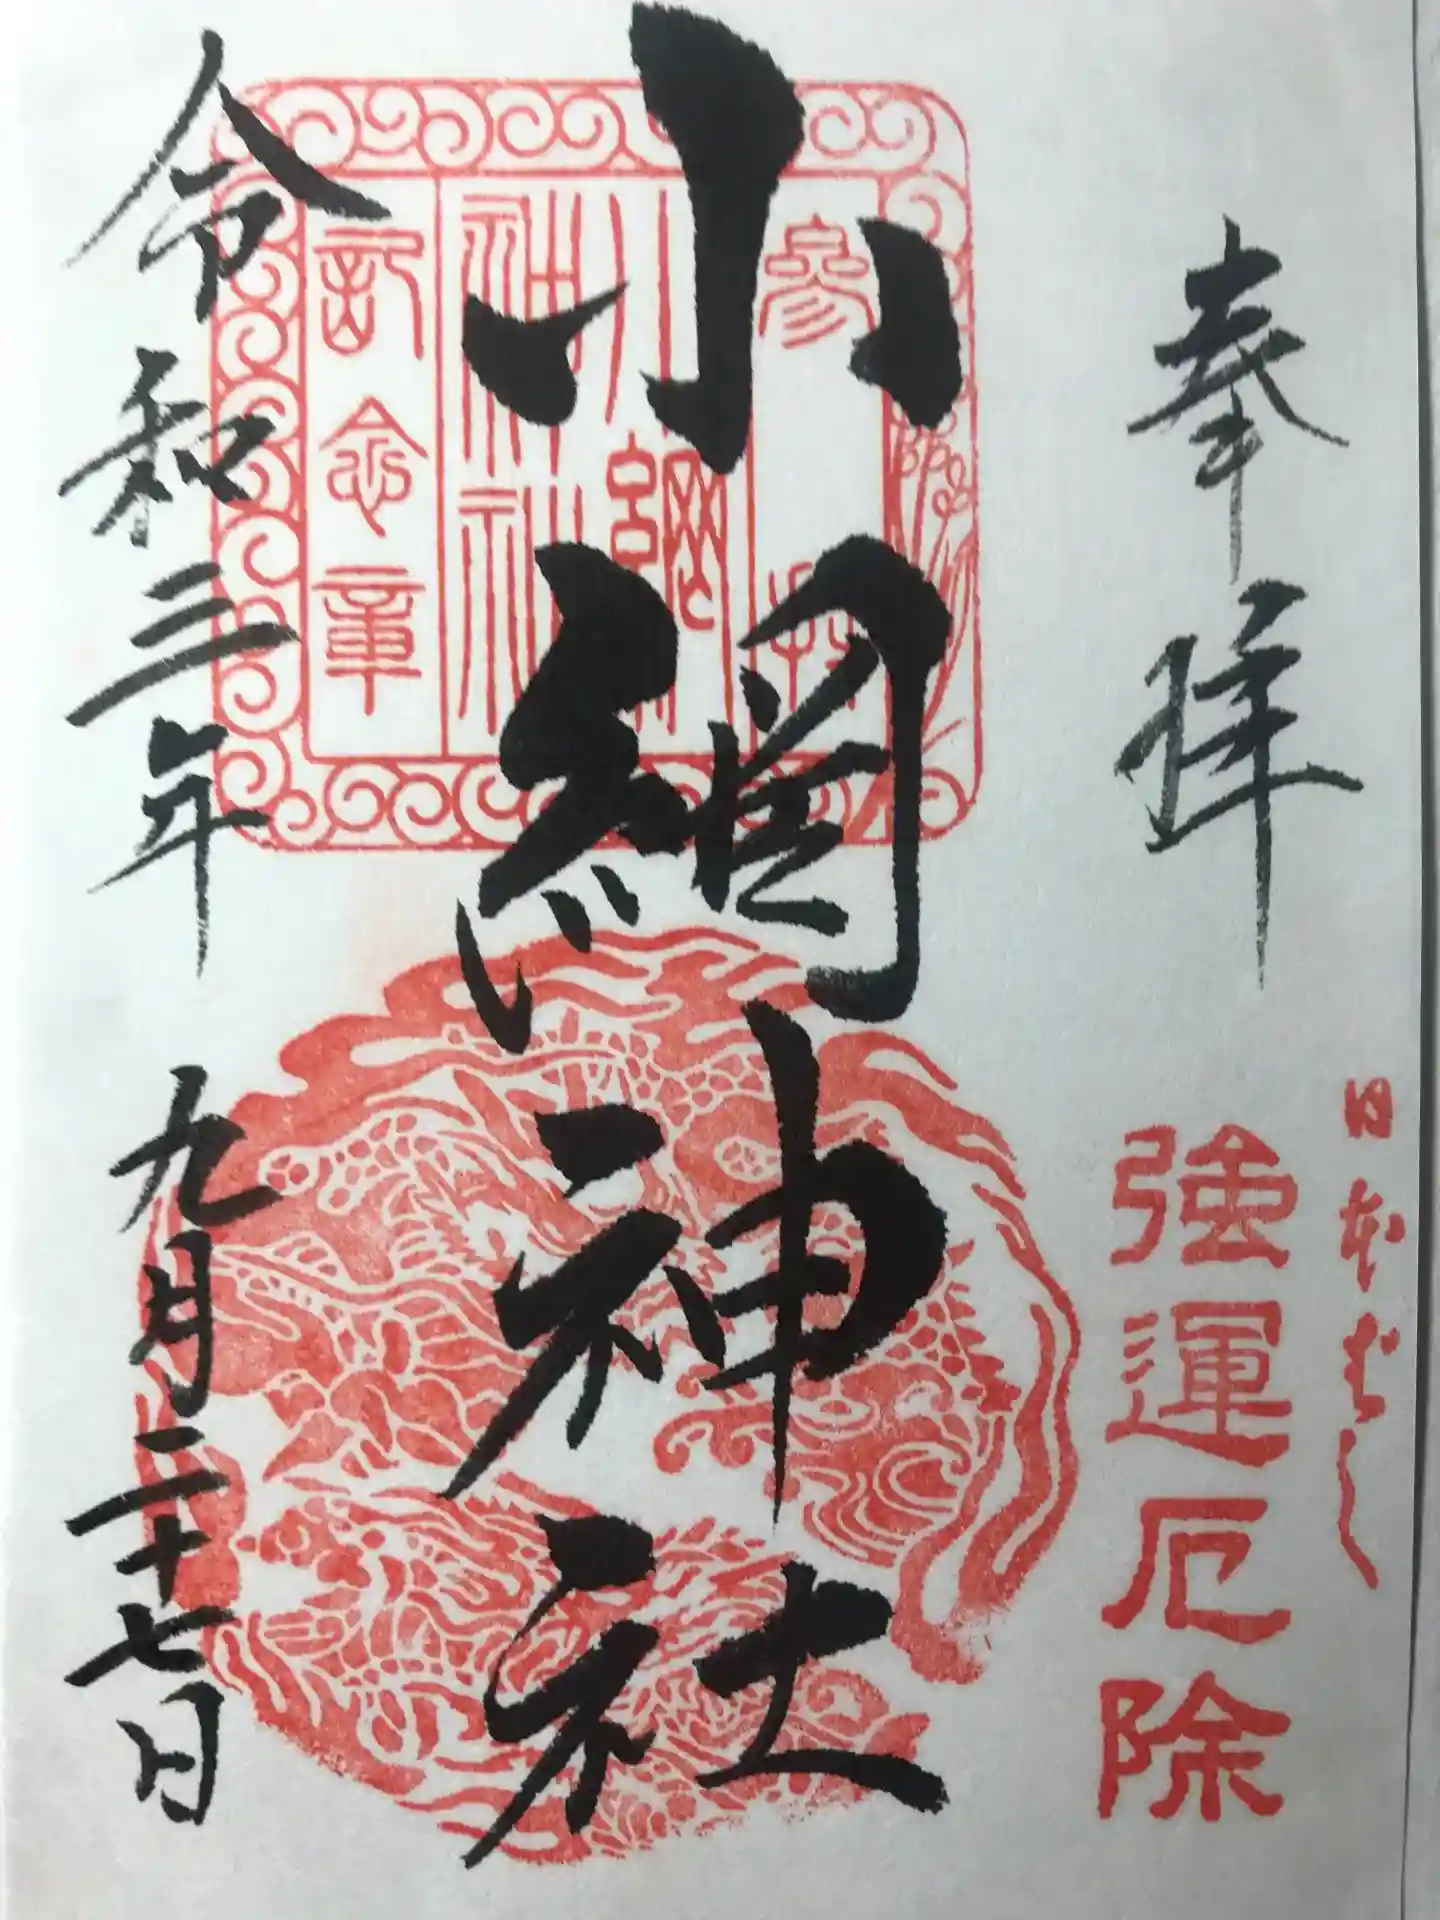 奉拝
日本ばし
強運厄除
小網神社
参拝
小網
神社
記念章
令和三年 九月二十七日